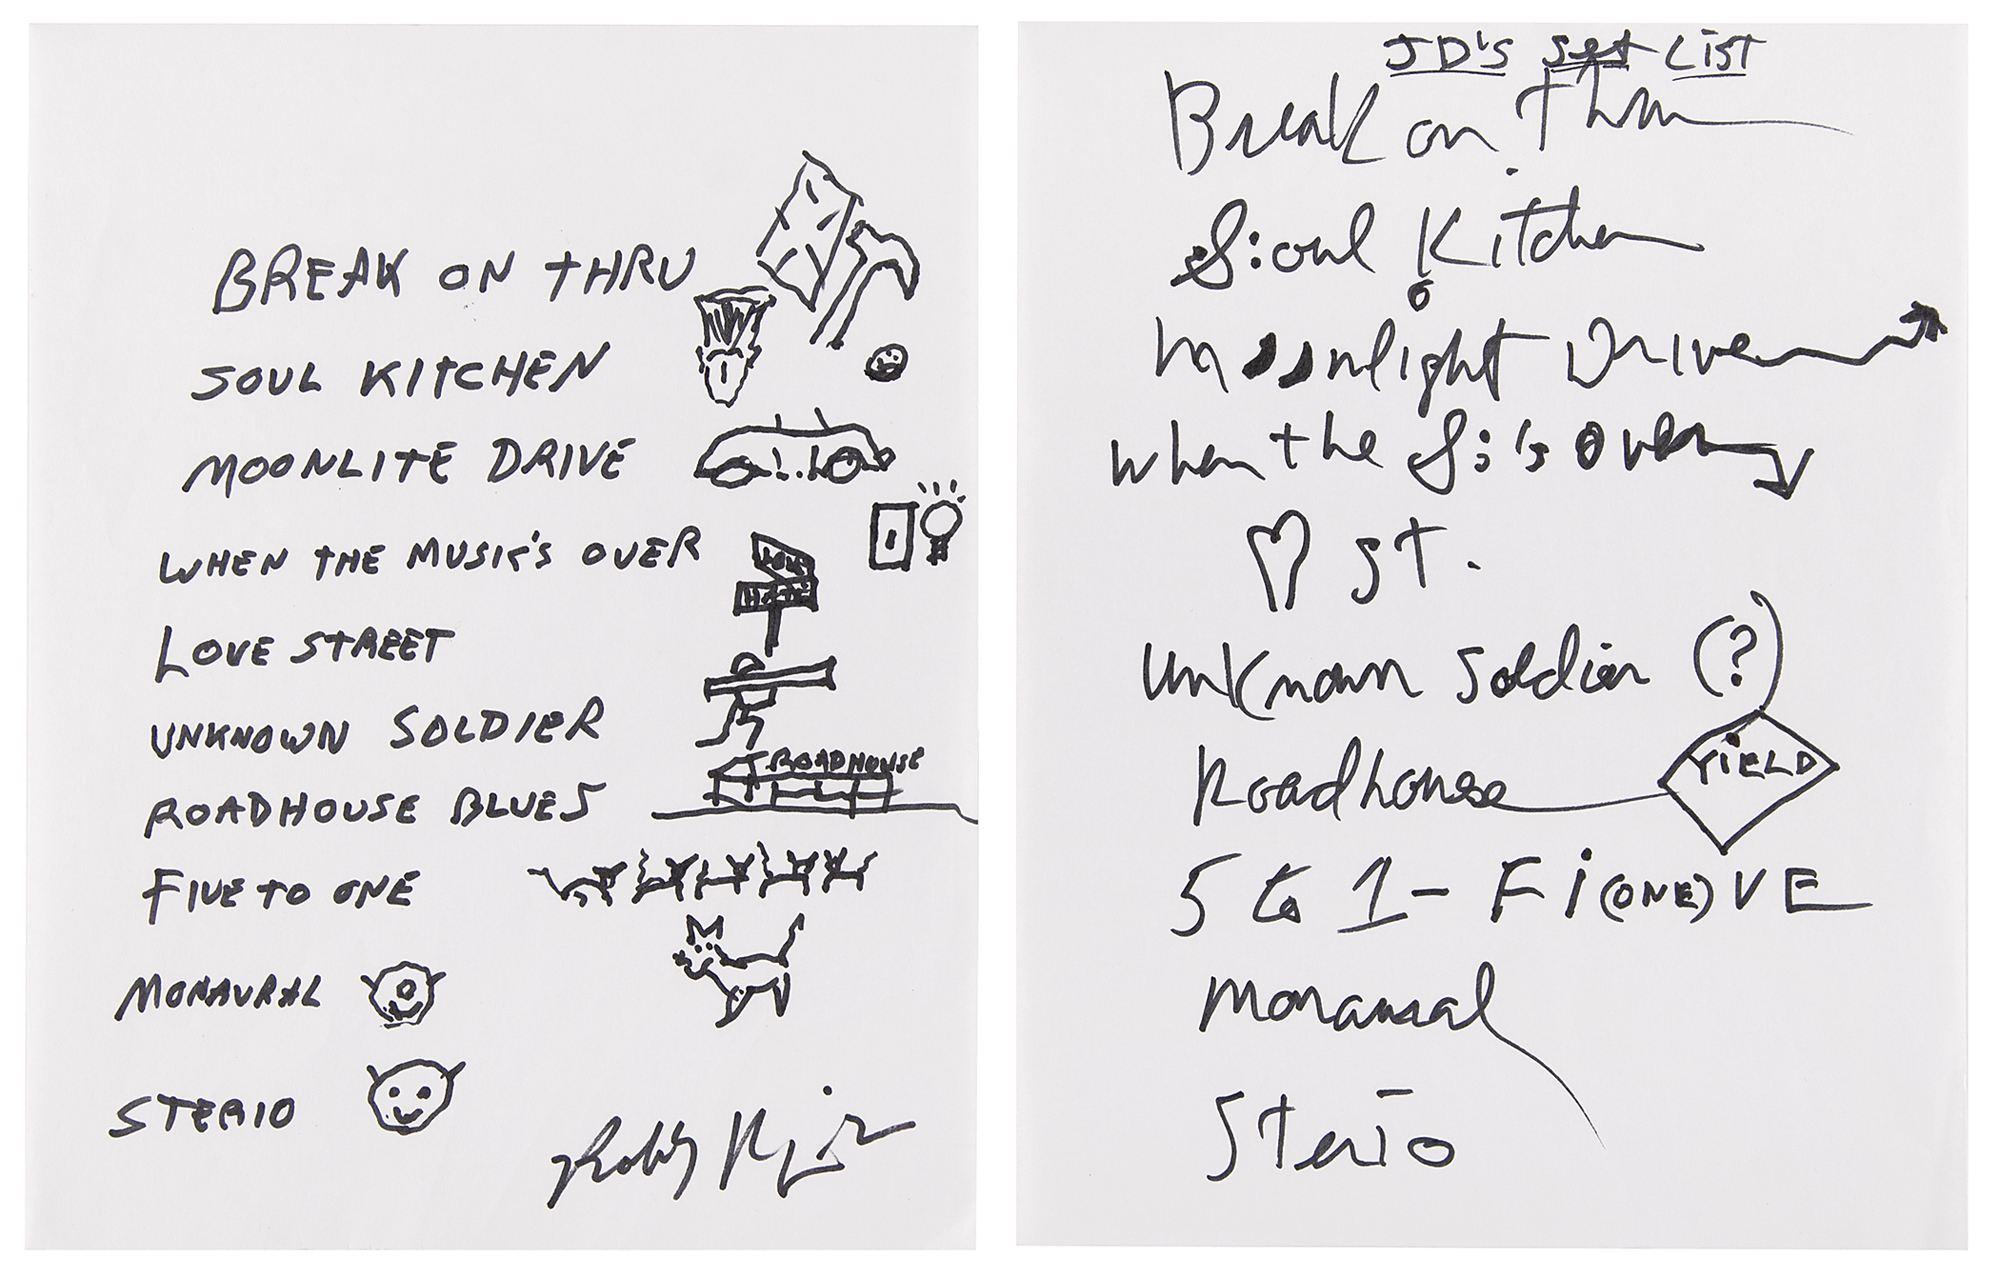 BREAK ON THRU
SOUL KITCHEN
MOONLITE DRIVE
WHEN THE MUSIC'S OVER
LOVE
HATE
LOVE STREET
UNKNOWN SOLDIER
ROADHOUSE
ROADHOUSE BLUES
FIVE TO ONE
MONAURAL
STERIO
Robby Krieger
JD'S Set LIST
Break on Thru
Soul Kitchen
Moonlight Drive
When the S's Over
♡ ST.
Unknown Soldier (?)
Roadhouse
YiELD
5 to 1 - Fi(ONE)VE
Monaural
Sterio